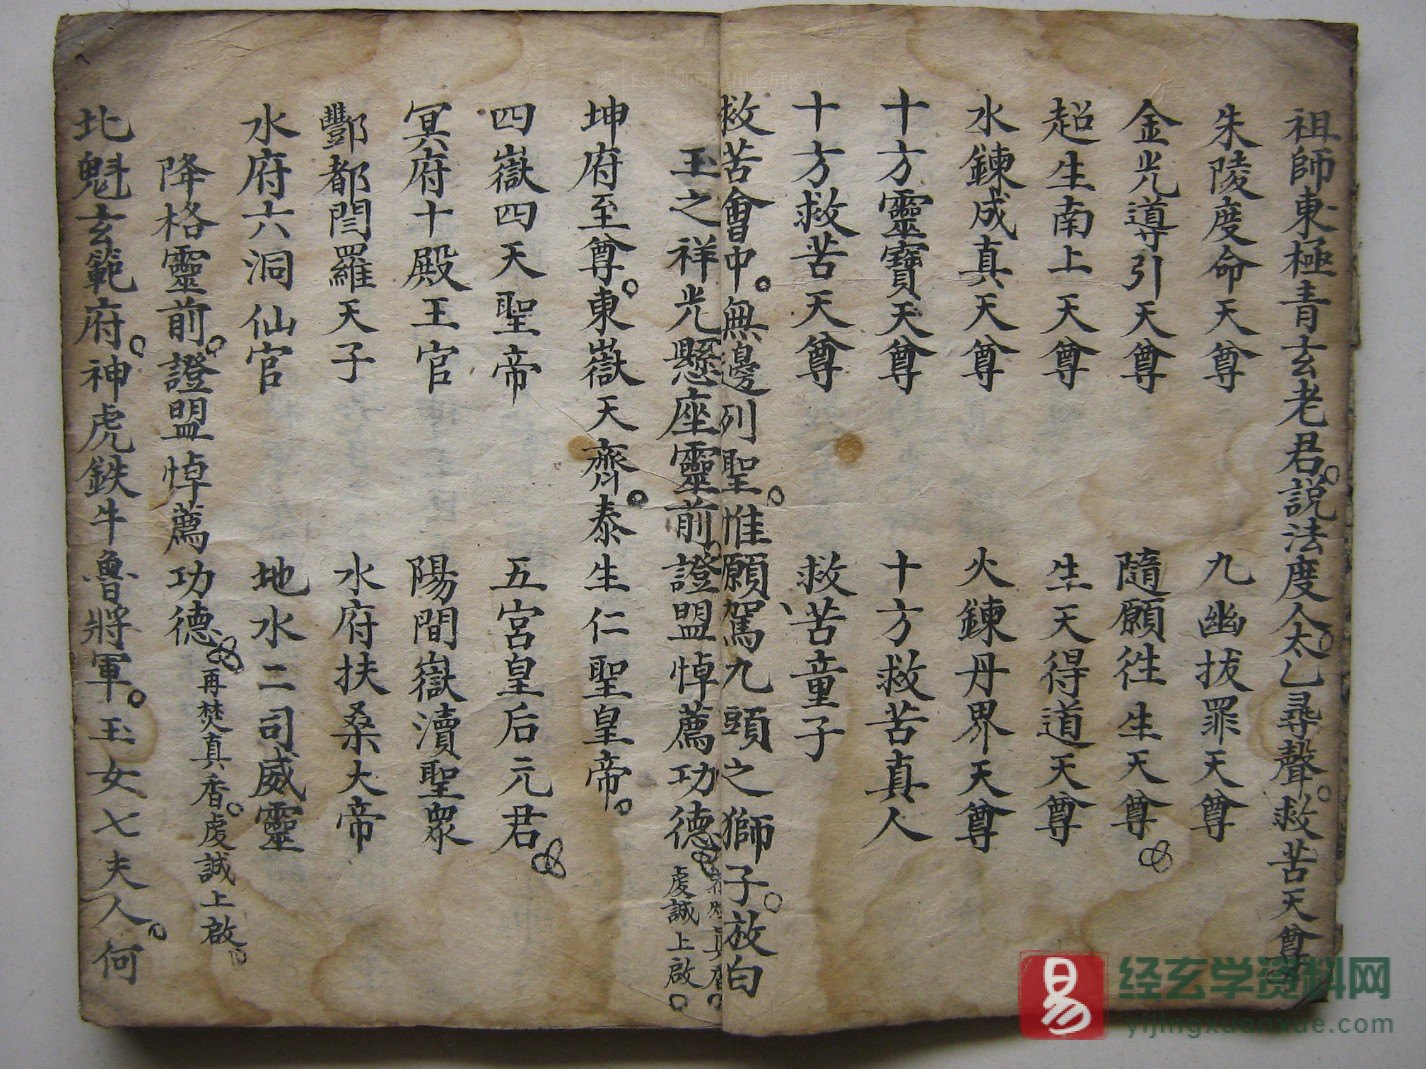 祖師東極青玄老君。說法度人。太乙尋聲。救苦天尊
朱陵度命天尊　九幽拔罪天尊
金光導引天尊　隨願往生天尊
超生南上天尊　生天得道天尊
水鍊成真天尊　火鍊丹界天尊
十方靈寶天尊　十方救苦真人
十方救苦天尊　救苦童子
救苦會中。無邊列聖。惟願駕九頭之獅子。放白
玉之祥光懸座靈前。證盟悼薦功德
真香。虔誠上啟。
坤府至尊。東嶽天齊。泰生仁聖皇帝。
四嶽四天聖帝　五宮皇后元君
冥府十殿王官　陽間嶽瀆聖眾
酆都閆羅天子　水府扶桑大帝
水府六洞仙官　地水二司威靈
降格靈前。證盟悼薦功德
再焚真香。虔誠上啟。
北魁玄範府。神虎鉄牛魯將軍。玉女七夫人。何
易
经玄学资料网
yijingxuanxue.com